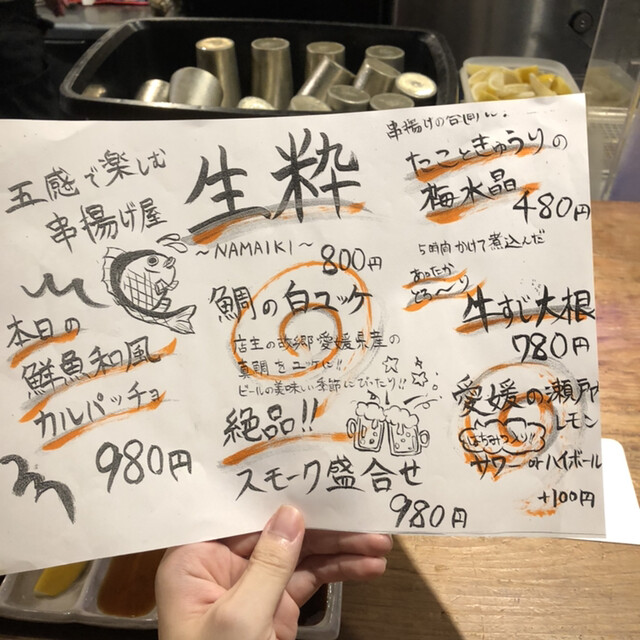 五感で楽しむ
串揚げ屋
生粋
~NAMAIKI~
本日の
鮮魚和風
カルパッチョ
980円
800円
鯛の白ユッケ
店主の故郷愛媛県産の
真鯛をユッケに!!
ビールの美味しい季節にぴったり!!
絶品!!
スモーク盛合せ
980円
串揚げの合間に!
たこときゅうりの
梅水晶
480円
5時間かけて煮込んだ
あったか
とろ〜り
牛すじ大根
780円
愛媛の瀬戸内
レモン
はちみつ入り!!
サワー orハイボール
+100円